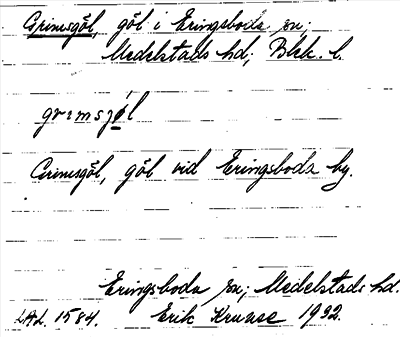 Grimsgöl, göl i Eringsboda sn;
Medelstads hd; Blek. l.
grimsjöl
Grimsgöl, göl vid Eringsboda by.
Eringsboda sn; Medelstads hd.
LAL. 1584. Erik Kruuse 1932.